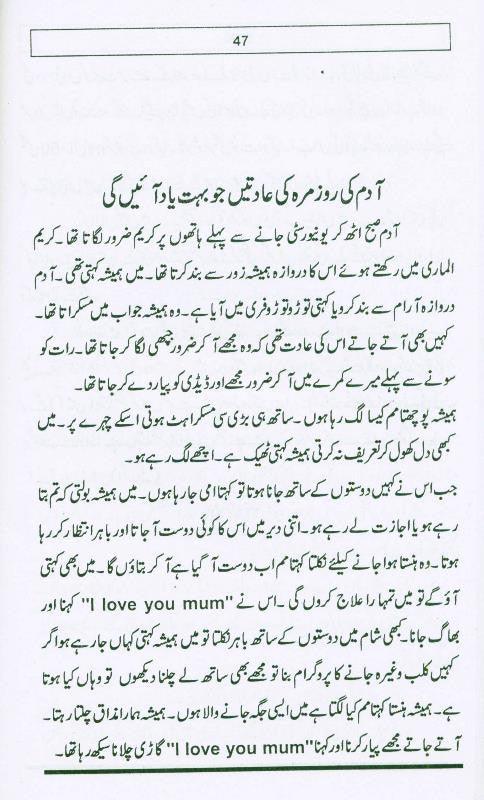 47
آدم کی روزمرہ کی عادتیں جو بہت یاد آئیں گی
آدم صبح اٹھ کر یونیورسٹی جانے سے پہلے ہاتھوں پر کریم ضرور لگاتا تھا۔ کریم
الماری میں رکھتے ہوئے اس کا دروازہ ہمیشہ زور سے بند کرتا تھا۔ میں ہمیشہ کہتی تھی۔ آدم
دروازہ آرام سے بند کرو یا کہتی توڑو توڑو فری میں آیا ہے۔ وہ ہمیشہ جواب میں مسکراتا تھا۔
کہیں بھی آتے جاتے اس کی عادت تھی کہ وہ مجھے آ کر ضرور چھی لگا کر جاتا تھا۔ رات کو
سونے سے پہلے میرے کمرے میں آ کر ضرور مجھے اور ڈیڈی کو پیار دے کر جاتا تھا۔
ہمیشہ پوچھتا مم کیسا لگ رہا ہوں۔ ساتھ ہی بڑی سی مسکراہٹ ہوتی اسکے چہرے پر۔ میں
کبھی دل کھول کر تعریف نہ کرتی ہمیشہ کہتی ٹھیک ہے۔ اچھے لگ رہے ہو۔
جب اس نے کہیں دوستوں کے ساتھ جانا ہوتا تو کہتا امی جا رہا ہوں۔ میں ہمیشہ بولتی کہ تم بتا
رہے ہو یا اجازت لے رہے ہو۔ اتنی دیر میں اس کا کوئی دوست آ جاتا اور باہر انتظار کر رہا
ہوتا۔ وہ ہنستا ہوا جانے کیلئے نکلتا کہتا مم اب دوست آ گیا ہے آ کر بتاؤں گا۔ میں بھی کہتی
آؤ گے تو میں تمہارا علاج کروں گی۔ اس نے "I love you mum" کہنا اور
بھاگ جانا۔ کبھی شام میں دوستوں کے ساتھ باہر نکلتا تو میں ہمیشہ کہتی کہاں جا رہے ہو اگر
کہیں کلب وغیرہ جانے کا پروگرام بنا تو مجھے بھی ساتھ لے چلنا دیکھوں تو وہاں کیا ہوتا
ہے۔ ہمیشہ ہنستا کہتا مم کیا لگتا ہے میں ایسی جگہ جانے والا ہوں۔ ہمیشہ ہمارا مذاق چلتا رہتا۔
آتے جاتے مجھے پیار کرنا اور کہنا "I love you mum" گاڑی چلانا سیکھ رہا تھا۔